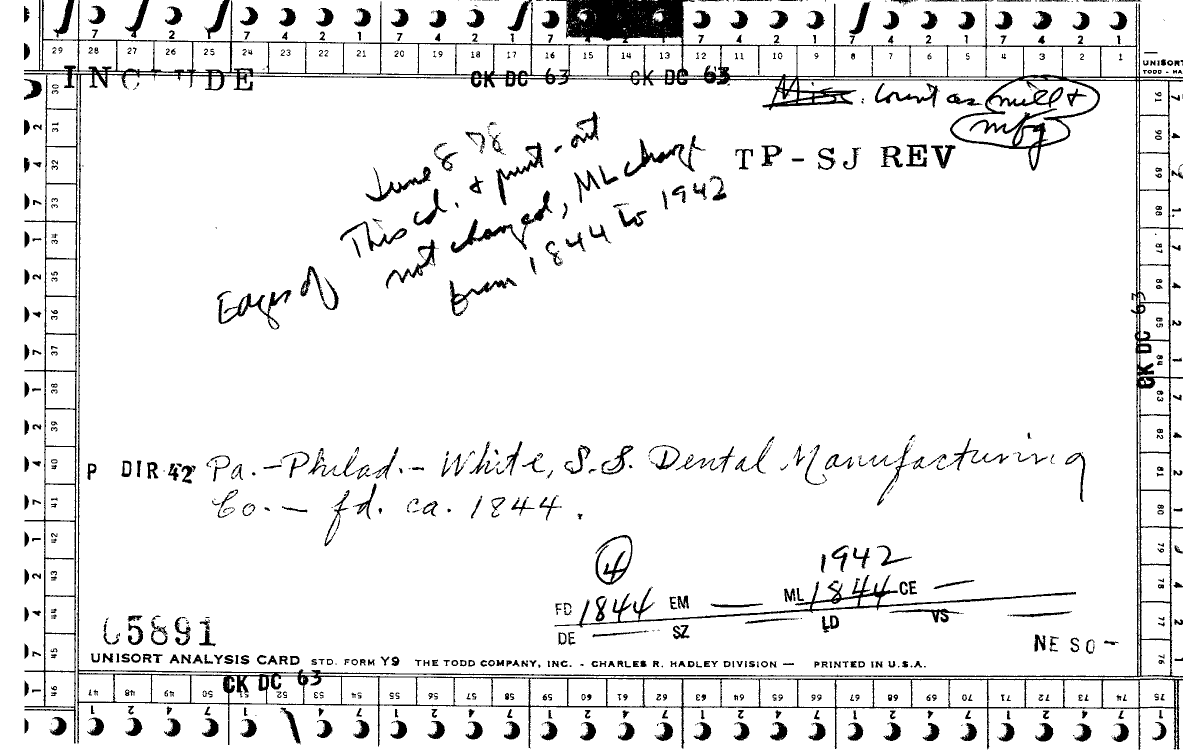 7 4 2 1 7 4 2 1 7 4 2 1 7 4 2 1 7 4 2 1
29 28 27 26 25 24 23 22 21 20 19 18 17 16 15 14 13 12 11 10 9 8 7 6 5 4 3 2 1
UNISORT
INCLUDE CK DC 63 CK DC 63
Misc. Count as mill &
mfg
TP-SJ REV
June 8 78
This cd. & print-out
Edges of not changed, ML change
from 1844 to 1942
30
31
32
33
34
35
36
37
38
39
40
41
42
43
44
45
46
91
90
89
88
87
86
85
84
83
82
81
80
79
78
77
76
CK DC 63
P DIR 42 Pa. - Philad. - White, S.S. Dental Manufacturing
Co. - fd. ca. 1844.
4 1942
FD 1844 EM — ML 1844 CE —
DE — SZ — LD — VS —
05891 NE SO -
UNISORT ANALYSIS CARD STD. FORM Y9 THE TODD COMPANY, INC. - CHARLES R. HADLEY DIVISION — PRINTED IN U.S.A.
CK DC 63
47 48 49 50 51 52 53 54 55 56 57 58 59 60 61 62 63 64 65 66 67 68 69 70 71 72 73 74 75